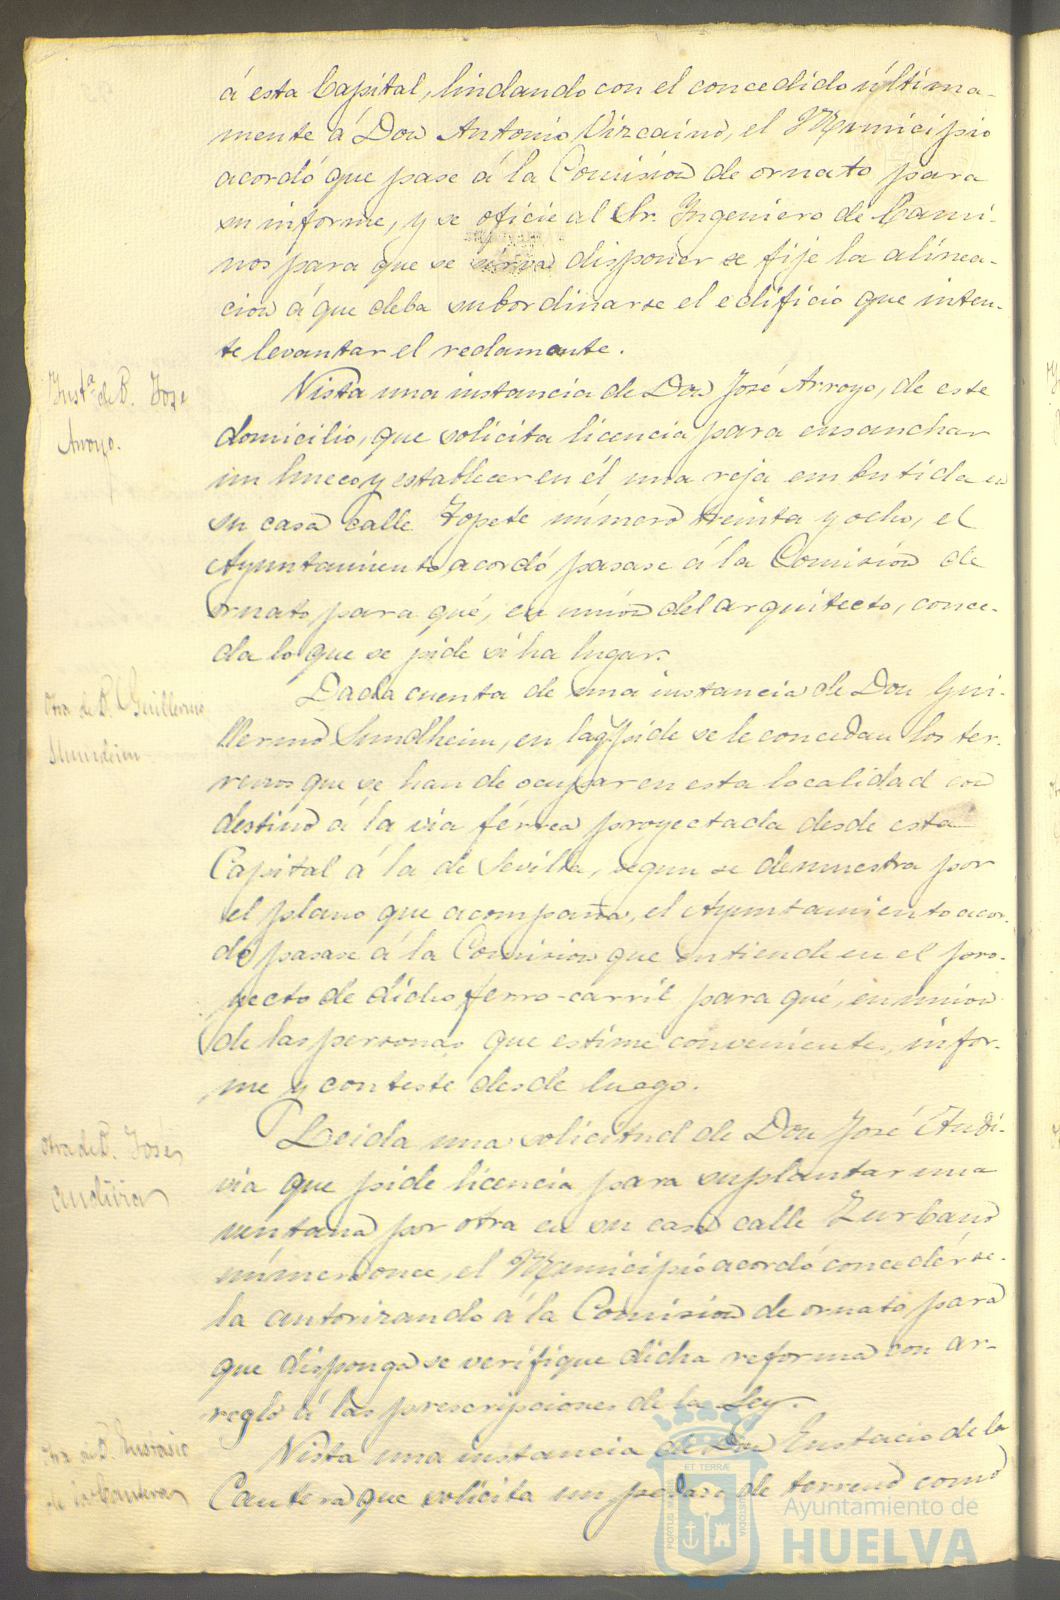 á esta Capital, lindando con el concedido última-
mente á Don Antonio Vizcaino, el Municipio
acordó que pase á la Comision de ornato para
su informe, y se oficie al Sr. Ingeniero de Cami-
nos para que se sirva disponer se fije la alinea-
cion á que deba subordinarse el edificio que inten-
te levantar el reclamante.
Inst.ª de D. José
Arroyo.
Vista una instancia de Don José Arroyo, de este
domicilio, que solicita licencia para ensanchar
un hueco y establecer en él una reja embutida en
su casa calle Topete número treinta y ocho, el
Ayuntamiento acordó pasase á la Comision de
ornato para qué, en union del arquitecto, conce-
da lo que se pide si ha lugar.
Otra de D. Guillermo
Slumdeim
Dada cuenta de una instancia de Don Gui-
llermo Sundheim, en la q. pide se le concedan los ter-
renos que se han de ocupar en esta localidad con
destino á la via férrea proyectada desde esta
Capital á la de Sevilla, segun se demuestra por
el plano que acompaña, el Ayuntamiento acor-
dó pasase á la Comision que entiende en el pro-
yecto de dicho ferro-carril para qué, en union
de las personas que estime convenientes, infor-
me y conteste desde luego.
Otra de D. José
Andivia
Leida una solicitud de Don José Andi-
via que pide licencia para suplantar una
ventana por otra en su casa calle Zurbano
número once, el Municipio acordó concedérse-
la autorizando á la Comision de ornato para
que disponga se verifique dicha reforma con ar-
reglo á las prescripciones de la Ley.
Otra de D. Eustasio
de la Cantera
Vista una instancia de Don Eustacio de la
Cantera que solicita un pedaso de terreno como
ET TERRÆ
PORTUS MARIS
CUSTODIA
Ayuntamiento de
HUELVA